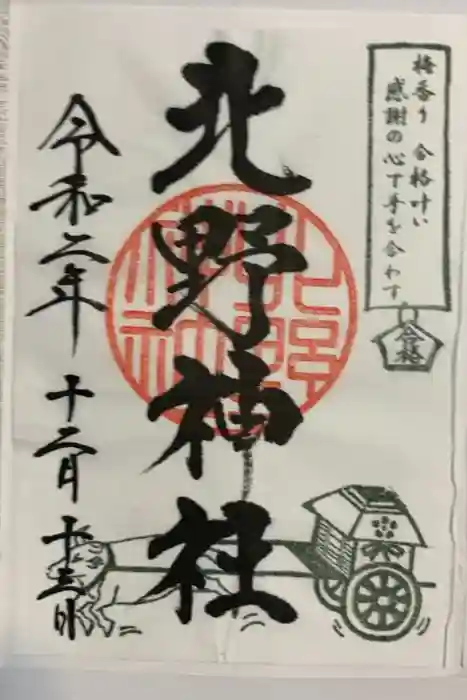 梅香り 合格叶い
感謝の心で手を合わす
合格
北野神社
北野神社
令和二年 十二月 十三日